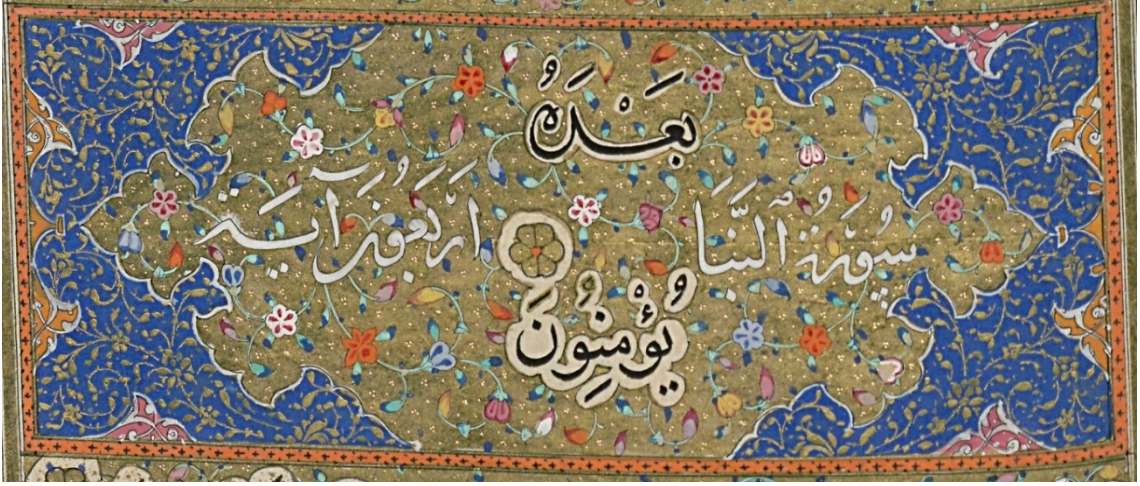 بَعْدَهُ
سُورَةُ النَّبَا اَرْبَعُونَ آيَة
يُؤْمِنُونَ